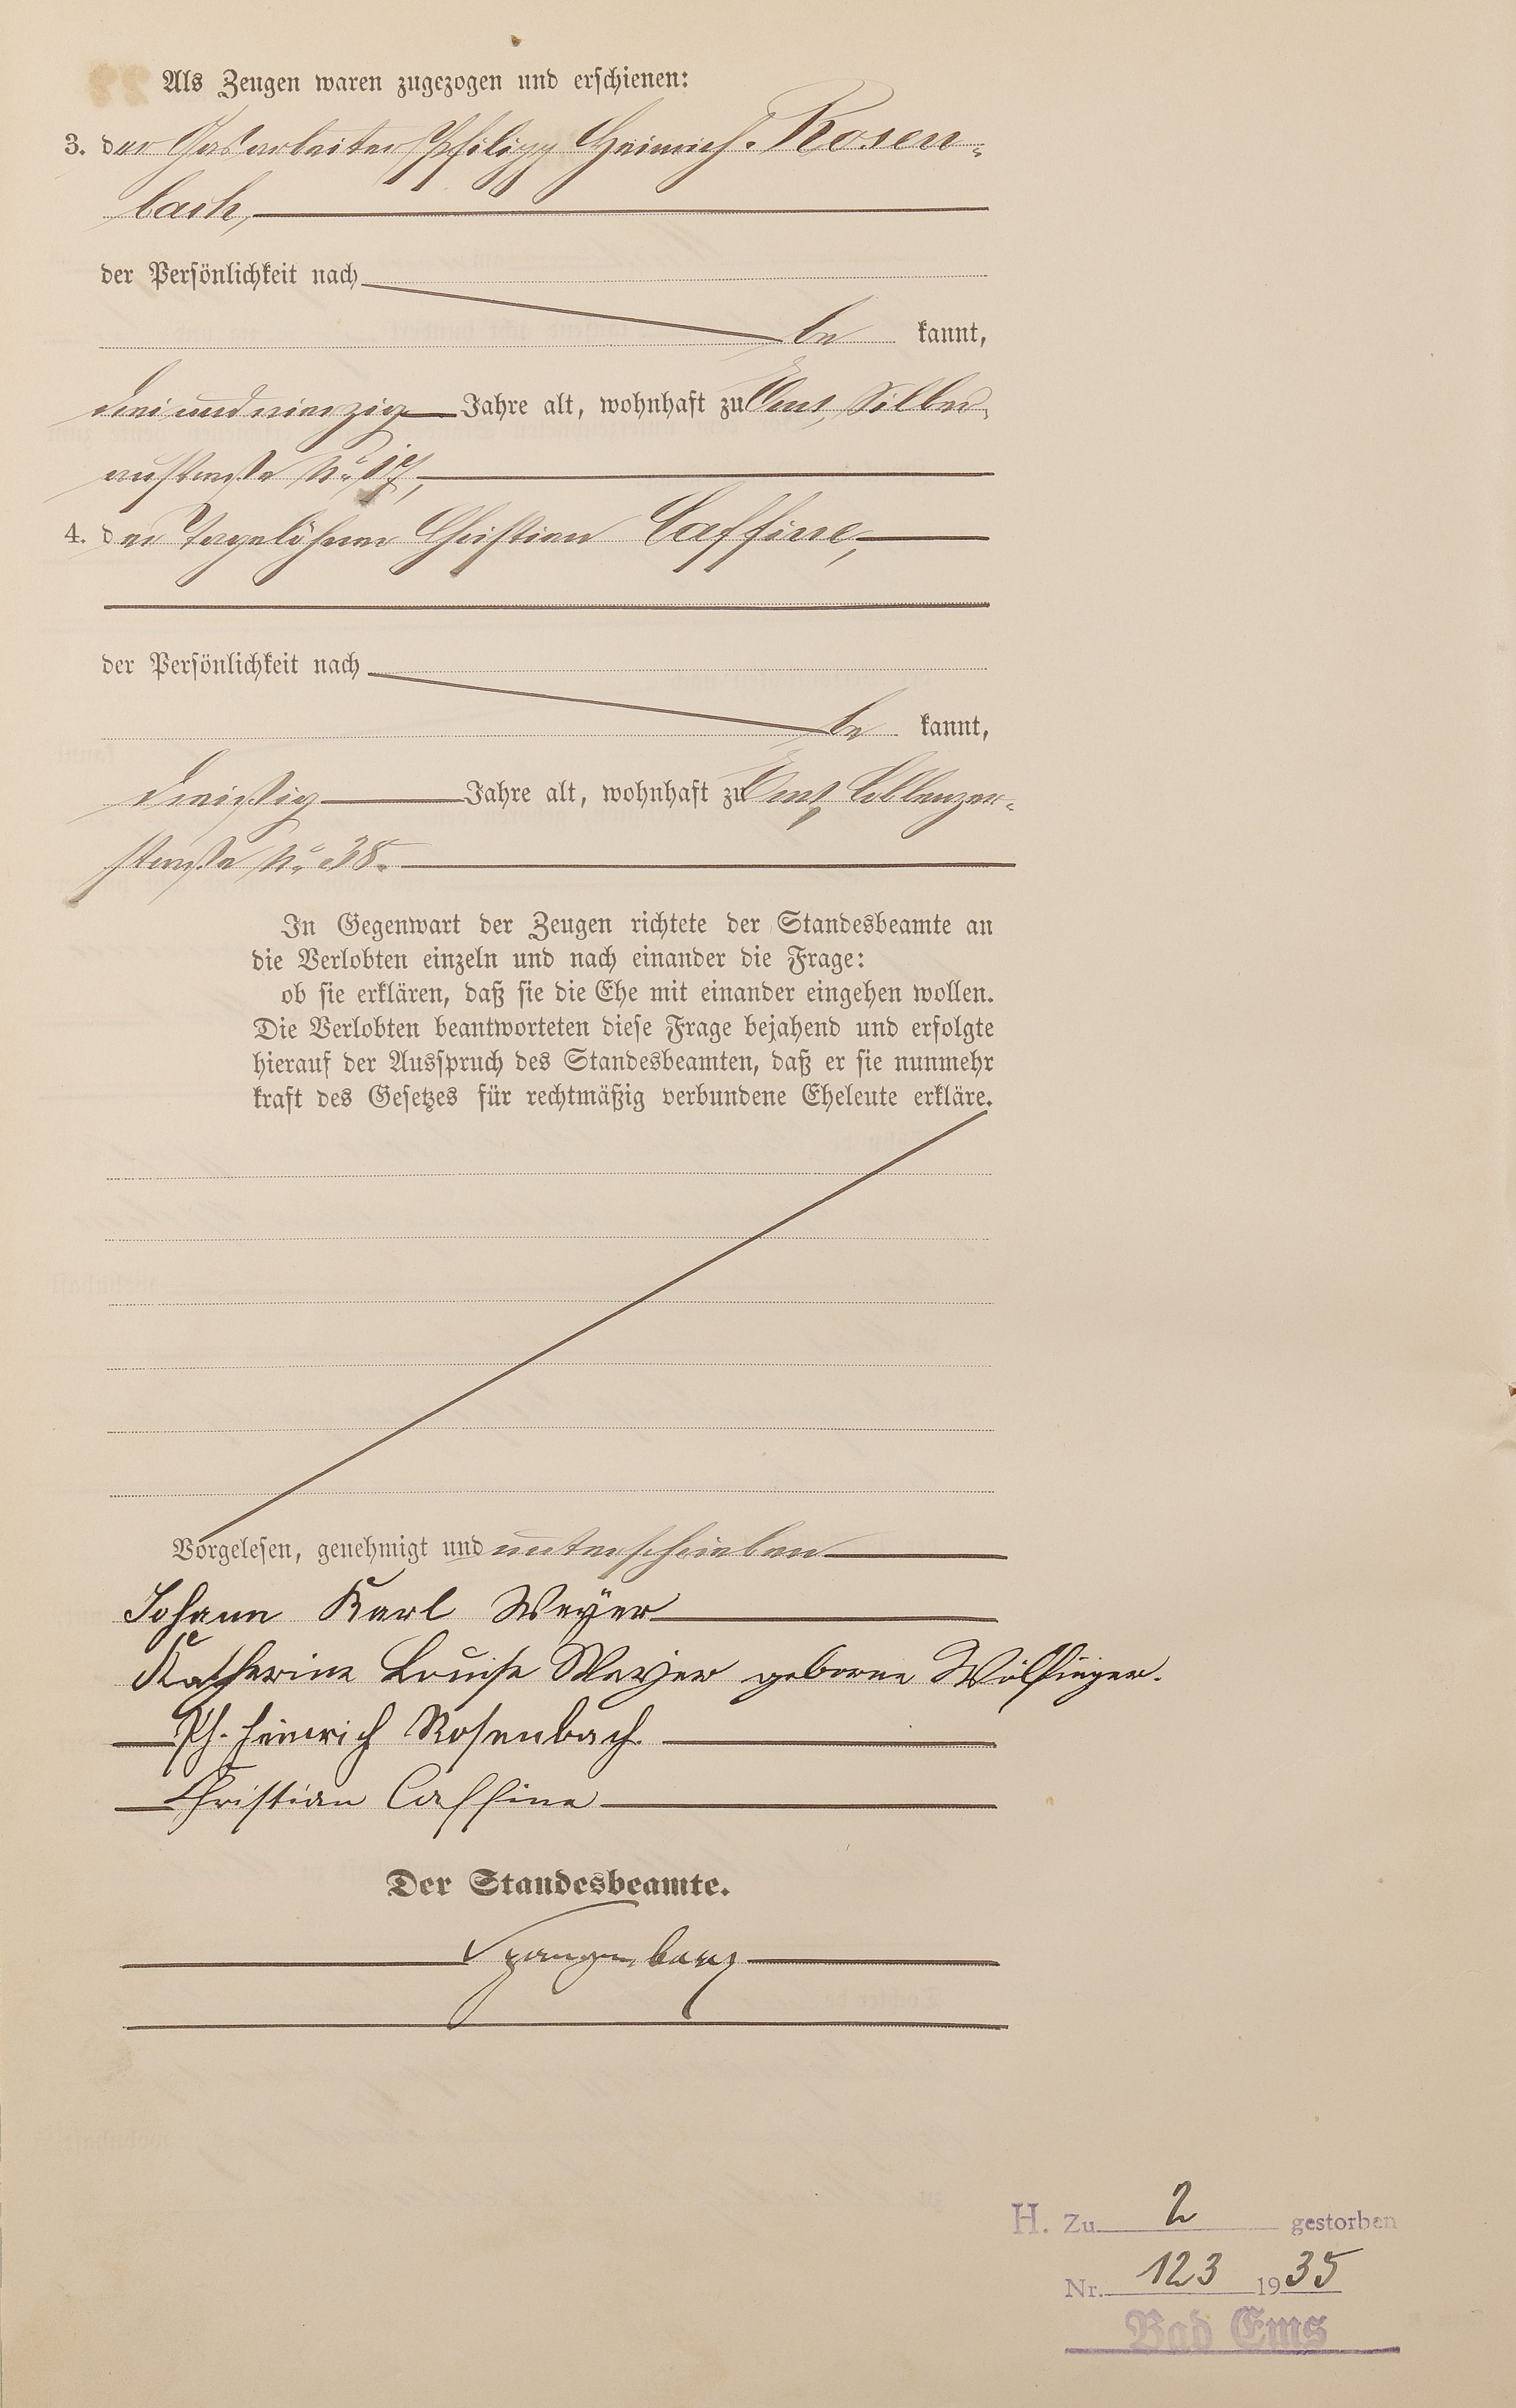 Als Zeugen waren zugezogen und erschienen:
3. der Gasarbeiter Philipp Heinrich Rosen=
bach,
der Persönlichkeit nach
be kannt,
dreiundvierzig Jahre alt, wohnhaft zu Ems, Silber=
austraße No 17,
4. der Tagelöhner Christian Caffine,
der Persönlichkeit nach
be kannt,
dreißig Jahre alt, wohnhaft zu Ems, Coblenzer=
straße No 38.
In Gegenwart der Zeugen richtete der Standesbeamte an
die Verlobten einzeln und nach einander die Frage:
ob sie erklären, daß sie die Ehe mit einander eingehen wollen.
Die Verlobten beantworteten diese Frage bejahend und erfolgte
hierauf der Ausspruch des Standesbeamten, daß er sie nunmehr
kraft des Gesetzes für rechtmäßig verbundene Eheleute erkläre.
Vorgelesen, genehmigt und unterschrieben
Johann Karl Weyer
Katherine Louise Weyer geborne Wölfinger.
Ph. Heinrich Rosenbach.
Christian Caffine
Der Standesbeamte.
Spangenberg
H. Zu 2 gestorben
Nr. 123 1935
Bad Ems